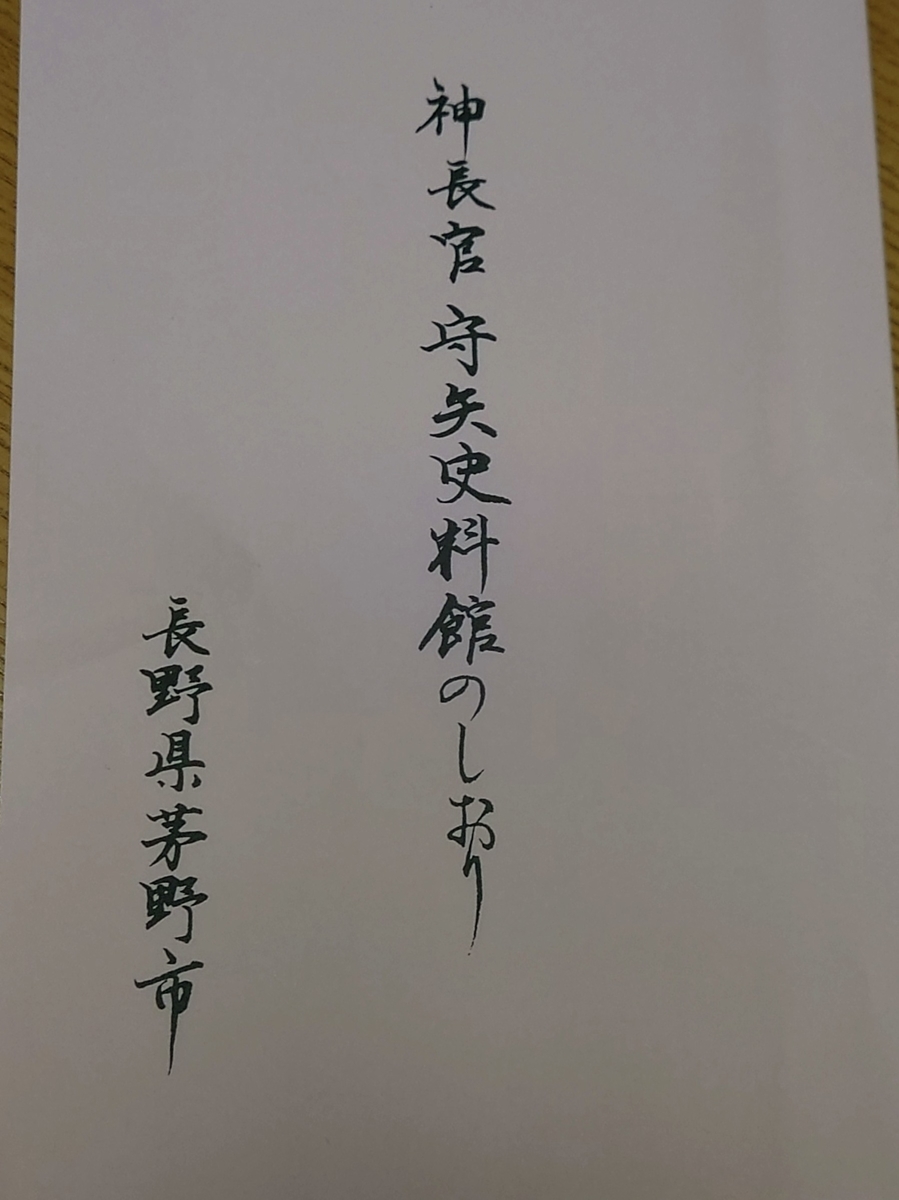 神長官守矢史料館のしおり
長野県茅野市